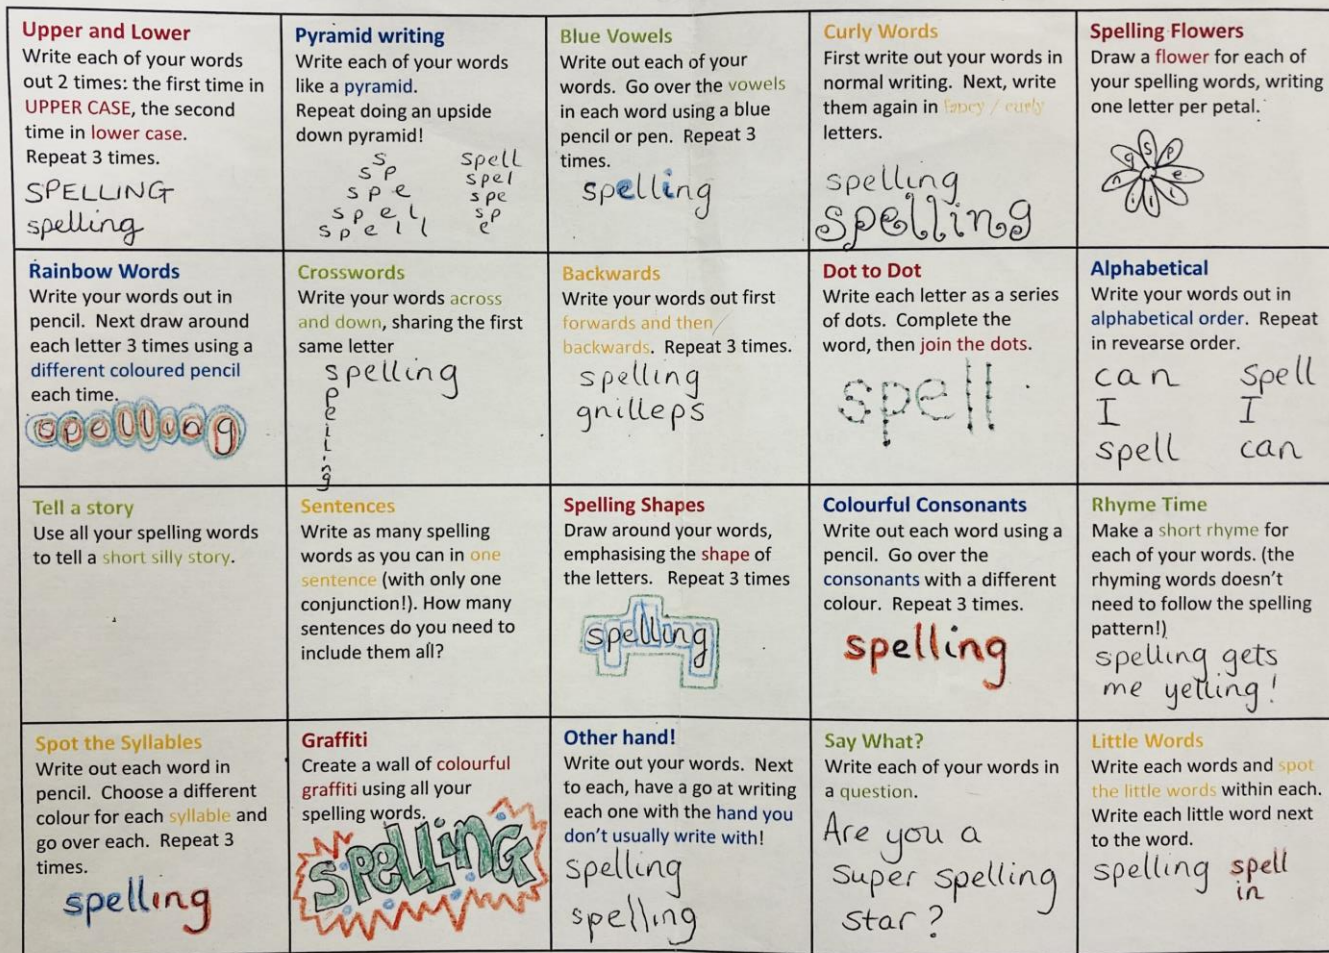 Upper and Lower
Write each of your words
out 2 times: the first time in
UPPER CASE, the second
time in lower case.
Repeat 3 times.
SPELLING
spelling
Pyramid writing
Write each of your words
like a pyramid.
Repeat doing an upside
down pyramid!
s
sp
spe
spel
spell
spell
spel
spe
sp
e
Blue Vowels
Write out each of your
words. Go over the vowels
in each word using a blue
pencil or pen. Repeat 3
times.
spelling
Curly Words
First write out your words in
normal writing. Next, write
them again in fancy / curly
letters.
spelling
spelling
Spelling Flowers
Draw a flower for each of
your spelling words, writing
one letter per petal.
s
p
e
l
l
i
n
g
Rainbow Words
Write your words out in
pencil. Next draw around
each letter 3 times using a
different coloured pencil
each time.
spelling
Crosswords
Write your words across
and down, sharing the first
same letter
spelling
p
e
l
l
i
n
g
Backwards
Write your words out first
forwards and then
backwards. Repeat 3 times.
spelling
gnilleps
Dot to Dot
Write each letter as a series
of dots. Complete the
word, then join the dots.
spell
Alphabetical
Write your words out in
alphabetical order. Repeat
in revearse order.
can
I
spell
spell
I
can
Tell a story
Use all your spelling words
to tell a short silly story.
Sentences
Write as many spelling
words as you can in one
sentence (with only one
conjunction!). How many
sentences do you need to
include them all?
Spelling Shapes
Draw around your words,
emphasising the shape of
the letters. Repeat 3 times
spelling
Colourful Consonants
Write out each word using a
pencil. Go over the
consonants with a different
colour. Repeat 3 times.
spelling
Rhyme Time
Make a short rhyme for
each of your words. (the
rhyming words doesn't
need to follow the spelling
pattern!)
spelling gets
me yelling!
Spot the Syllables
Write out each word in
pencil. Choose a different
colour for each syllable and
go over each. Repeat 3
times.
spelling
Graffiti
Create a wall of colourful
graffiti using all your
spelling words.
SPELLING
Other hand!
Write out your words. Next
to each, have a go at writing
each one with the hand you
don't usually write with!
spelling
spelling
Say What?
Write each of your words in
a question.
Are you a
super spelling
star?
Little Words
Write each words and spot
the little words within each.
Write each little word next
to the word.
spelling spell
in